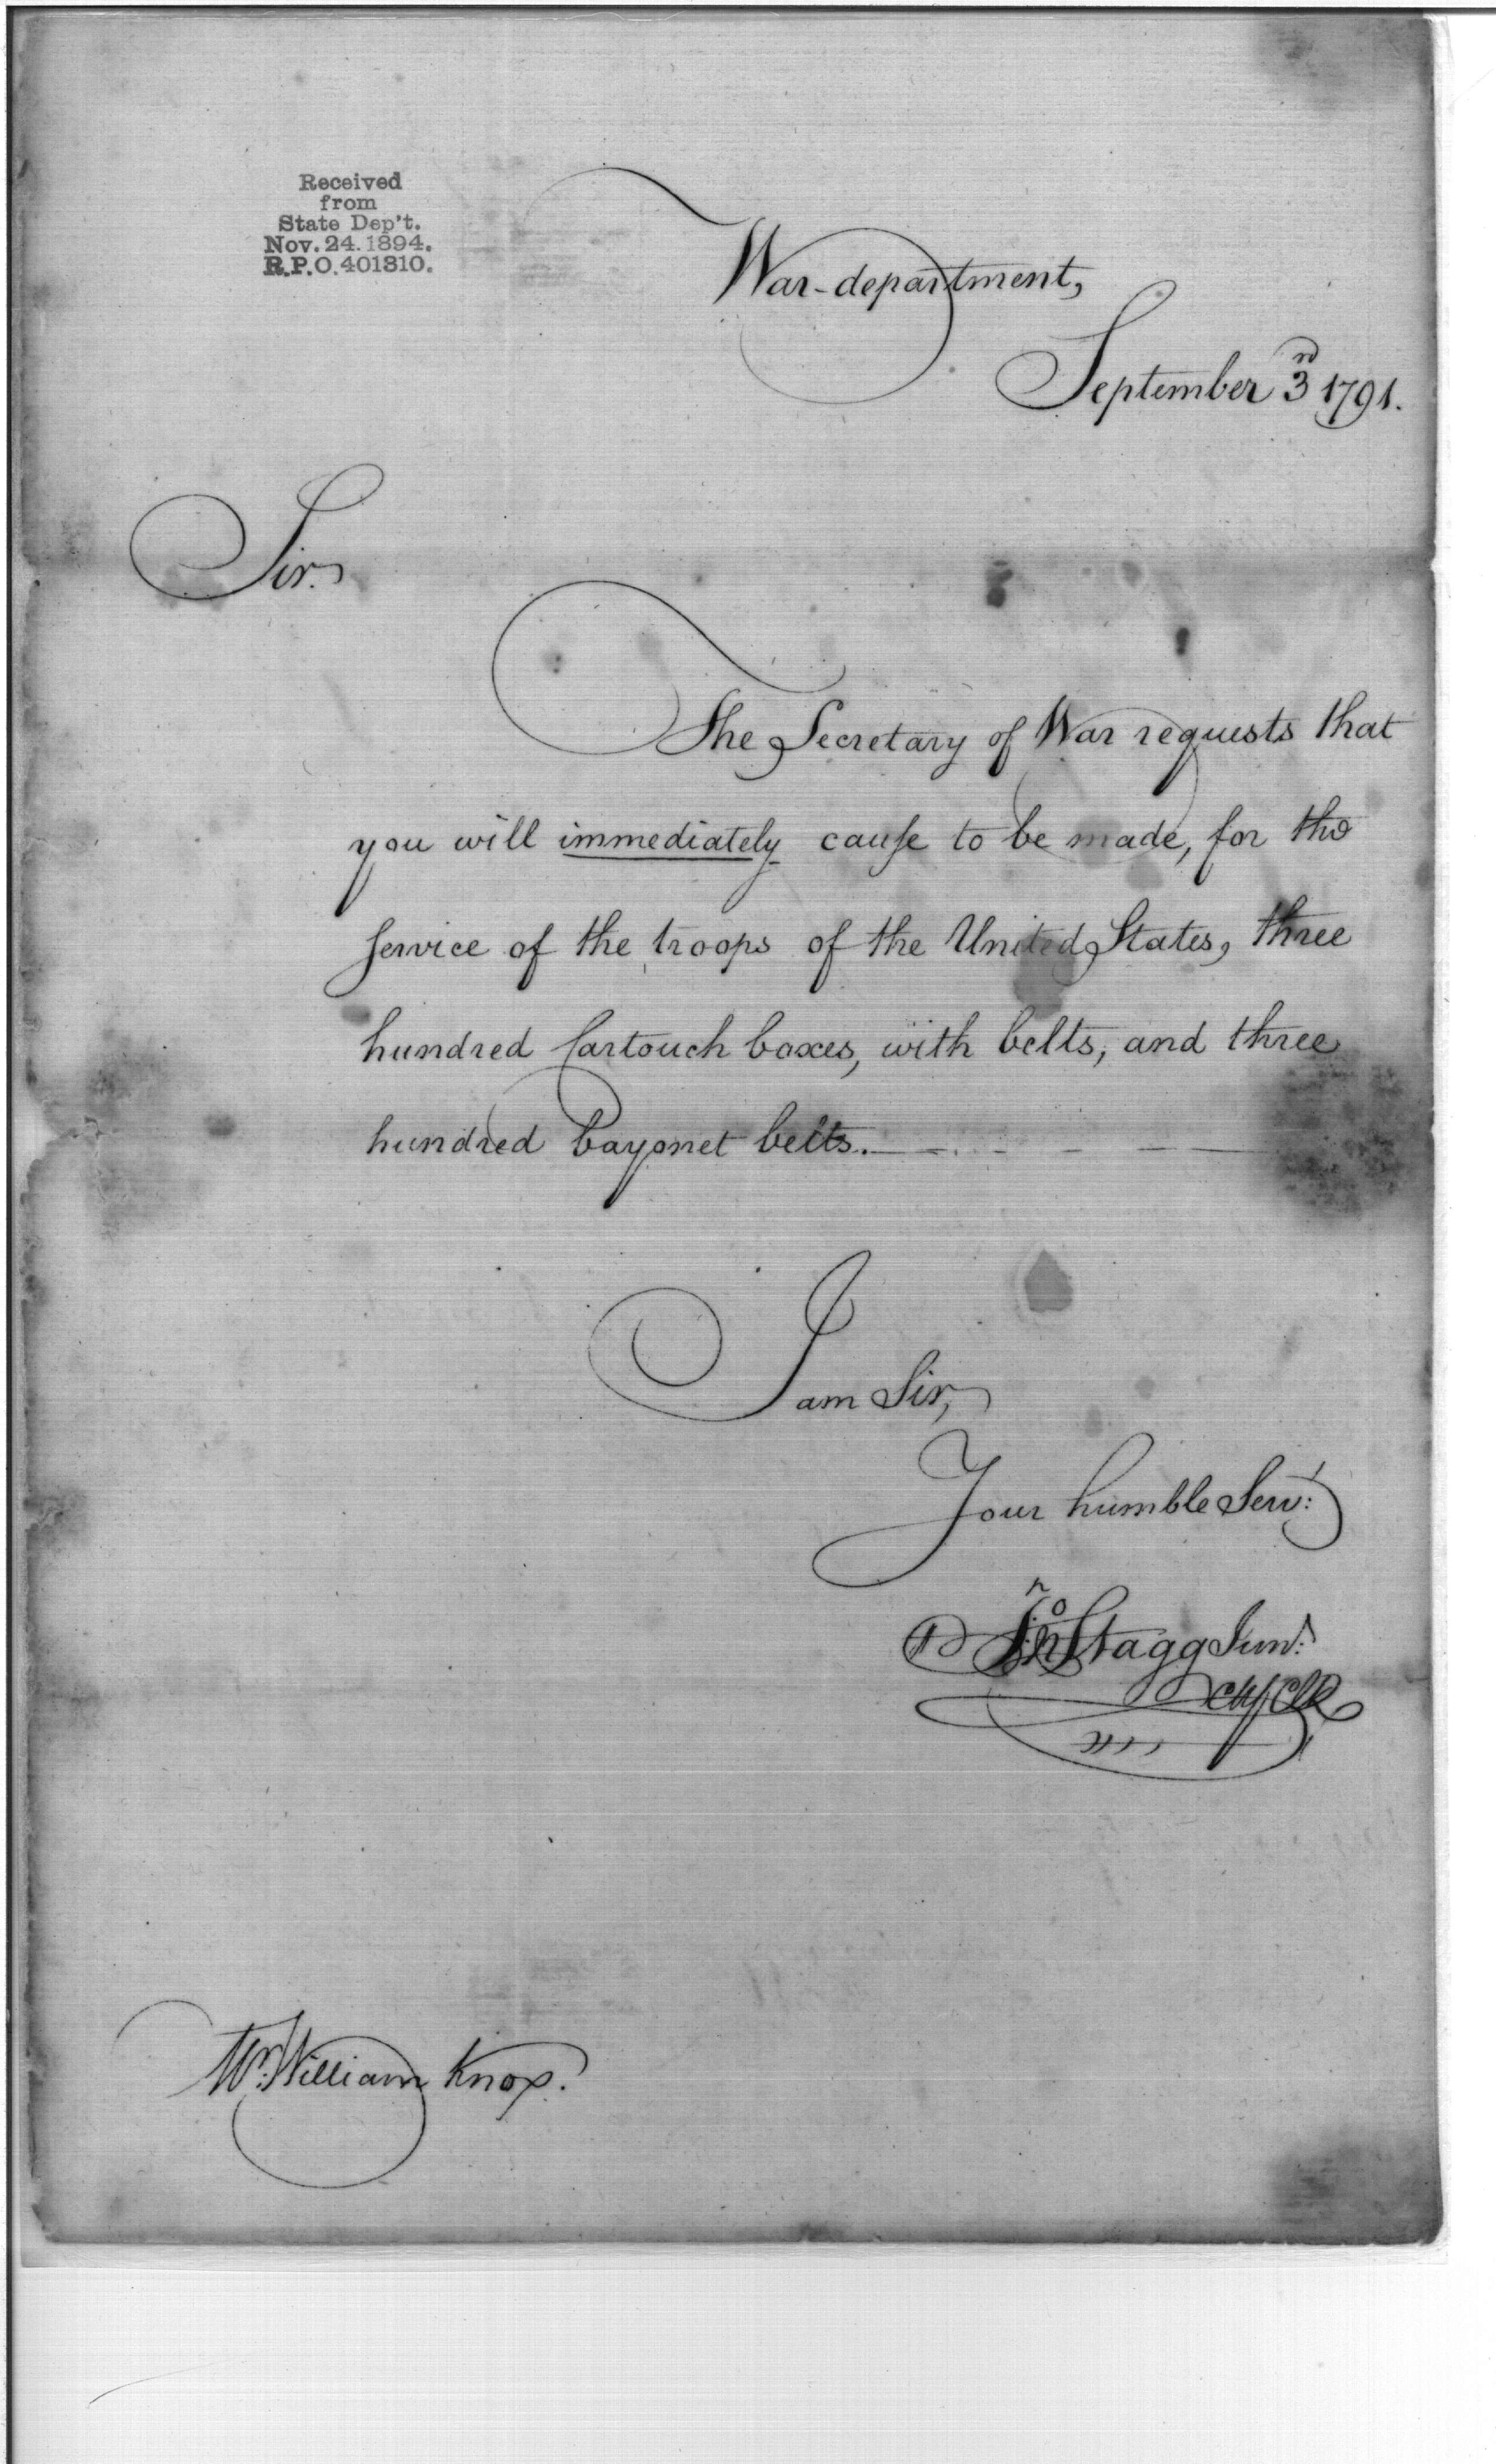 Received
from
State Dep't.
Nov. 24. 1894.
R.P.O. 401810.
War-department,
September 3rd 1791.
Sir.
The Secretary of War requests that
you will immediately cause to be made, for the
service of the troops of the United States, three
hundred Cartouch boxes, with belts, and three
hundred bayonet belts.
I am Sir,
Your humble Servt:
Jno Stagg Junr:
Chf Clk
Mr. William Knox.